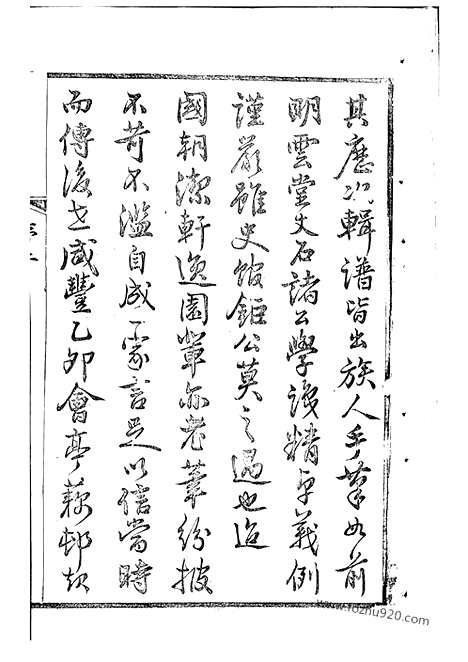 其歷次輯譜皆出族人手筆如前
明雲堂丈石諸公學識精卓義例
謹嚴雖史館鉅公莫之過也迨
國朝潔軒逸園輩亦老輩紛披
不苟不濫自成一家言足以信當時
而傳後世咸豐乙卯會亭蘇邨
www.fozhu920.com